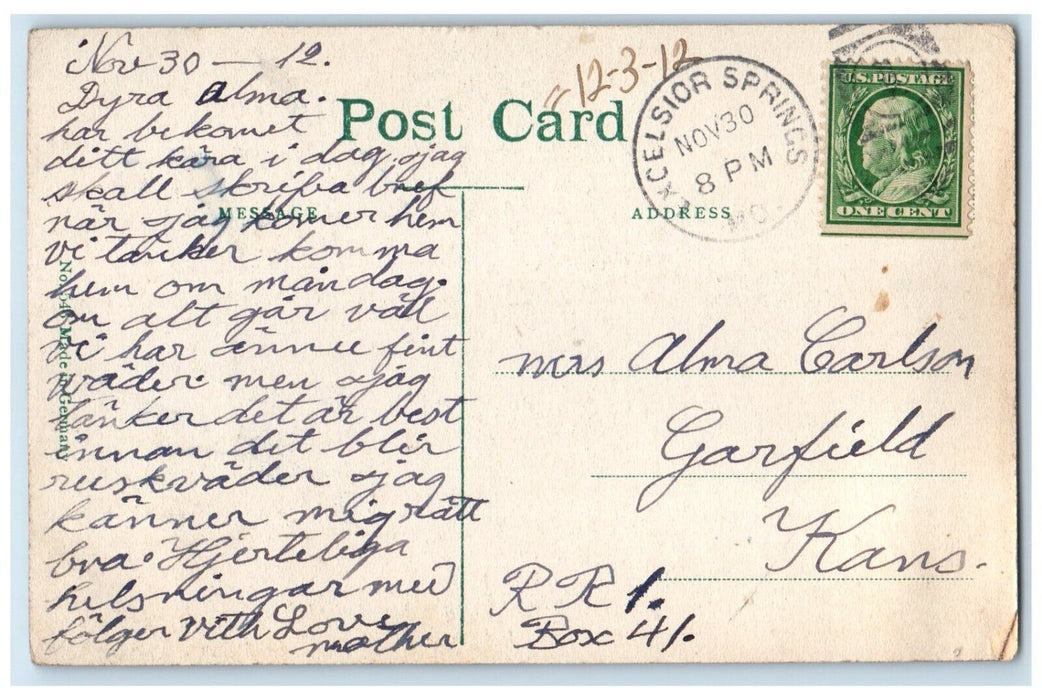 Nov 30 — 12.
Dyra Alma.
har bekomet
ditt kära i dag. jag
skall skrifva bref
när jag komer hem
vi tanker komma
hem om måndag.
om alt går väl
vi har ännu fint
väder. men jag
tänker det är best
innan det blir
ruskväder jag
känner mig rätt
bra. Hjerteliga
helsningar med
följer vith Love
mother
Post Card
MESSAGE
ADDRESS
Made in Germany
12-3-12
EXCELSIOR SPRINGS
NOV 30
8 PM
MO.
U.S. POSTAGE
ONE CENT
mrs Alma Carlson
Garfield
Kans.
R R 1.
Box 41.